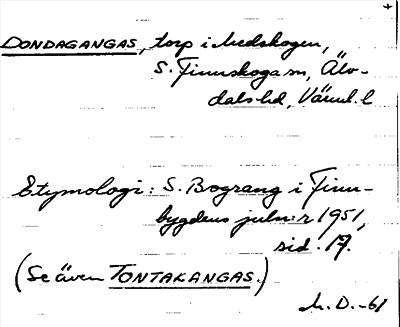 DONDAGANGAS, torp i Medskogen,
S. Finnskoga sn, Älv-
dals hd, Värml. l
Etymologi: S. Bograng i Finn-
bygdens juln:r 1951,
sid. 17.
(Se även TONTAKANGAS.)
M. D. -61